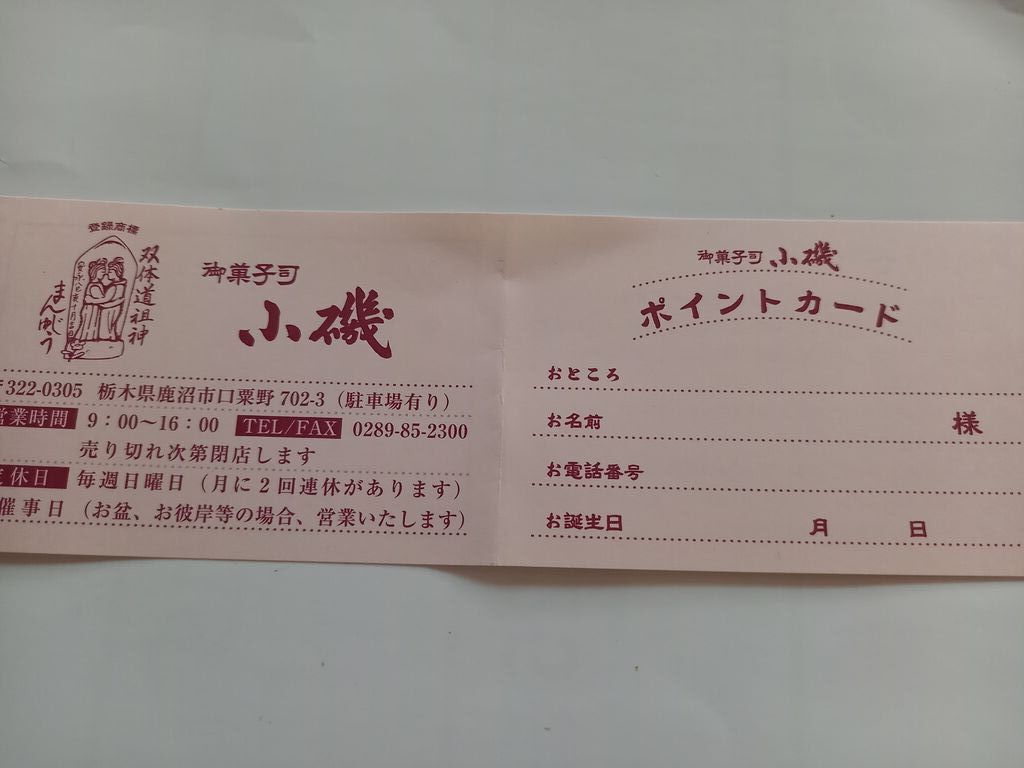 登録商標
双体道祖神
まんぢゅう
御菓子司
小磯
〒322-0305 栃木県鹿沼市口粟野702-3（駐車場有り）
営業時間 9：00〜16：00 TEL/FAX 0289-85-2300
売り切れ次第閉店します
定休日 毎週日曜日（月に2回連休があります）
催事日（お盆、お彼岸等の場合、営業いたします）
御菓子司 小磯
ポイントカード
おところ
お名前 様
お電話番号
お誕生日 月 日